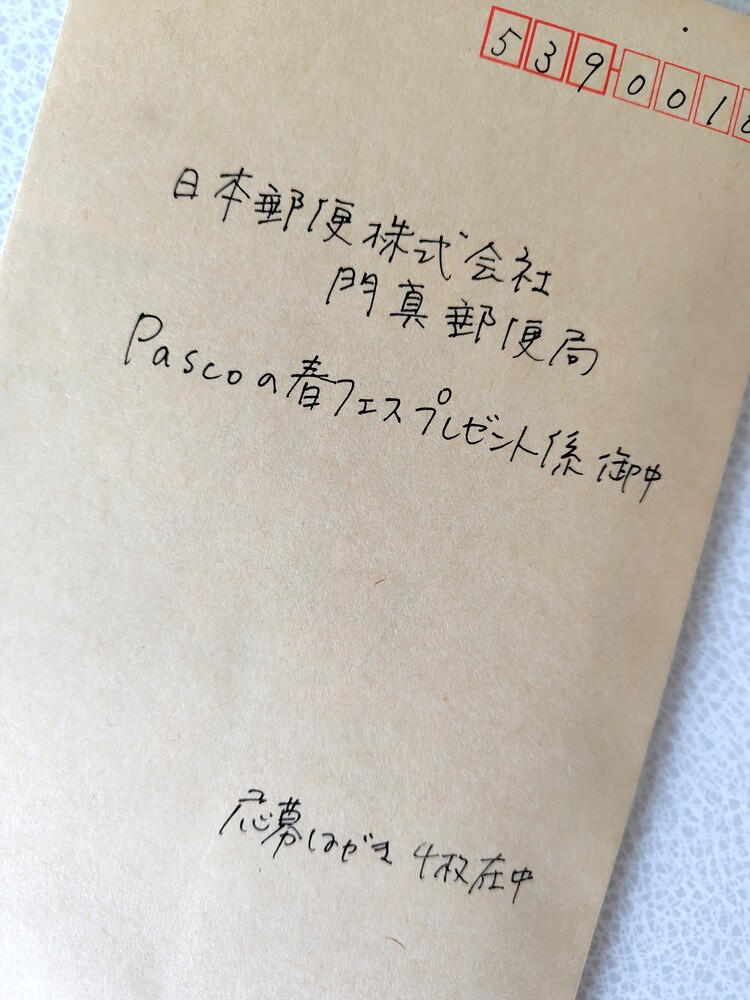 539001
日本郵便株式会社
門真郵便局
Pascoの春フェスプレゼント係 御中
応募はがき 4枚在中